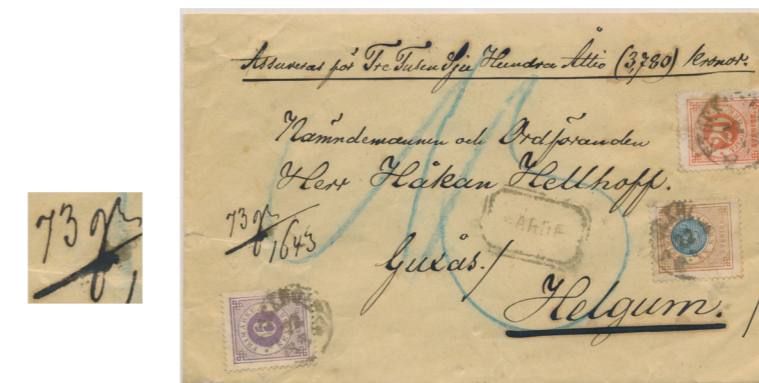 Assureras för Tre Tusen Sju Hundra Åttio (3,780) kronor.
Nämndemannen och Ordföranden
Herr Håkan Hellhoff.
73 gr
1643
Guxås./
Helgum.
20
6
73 gr